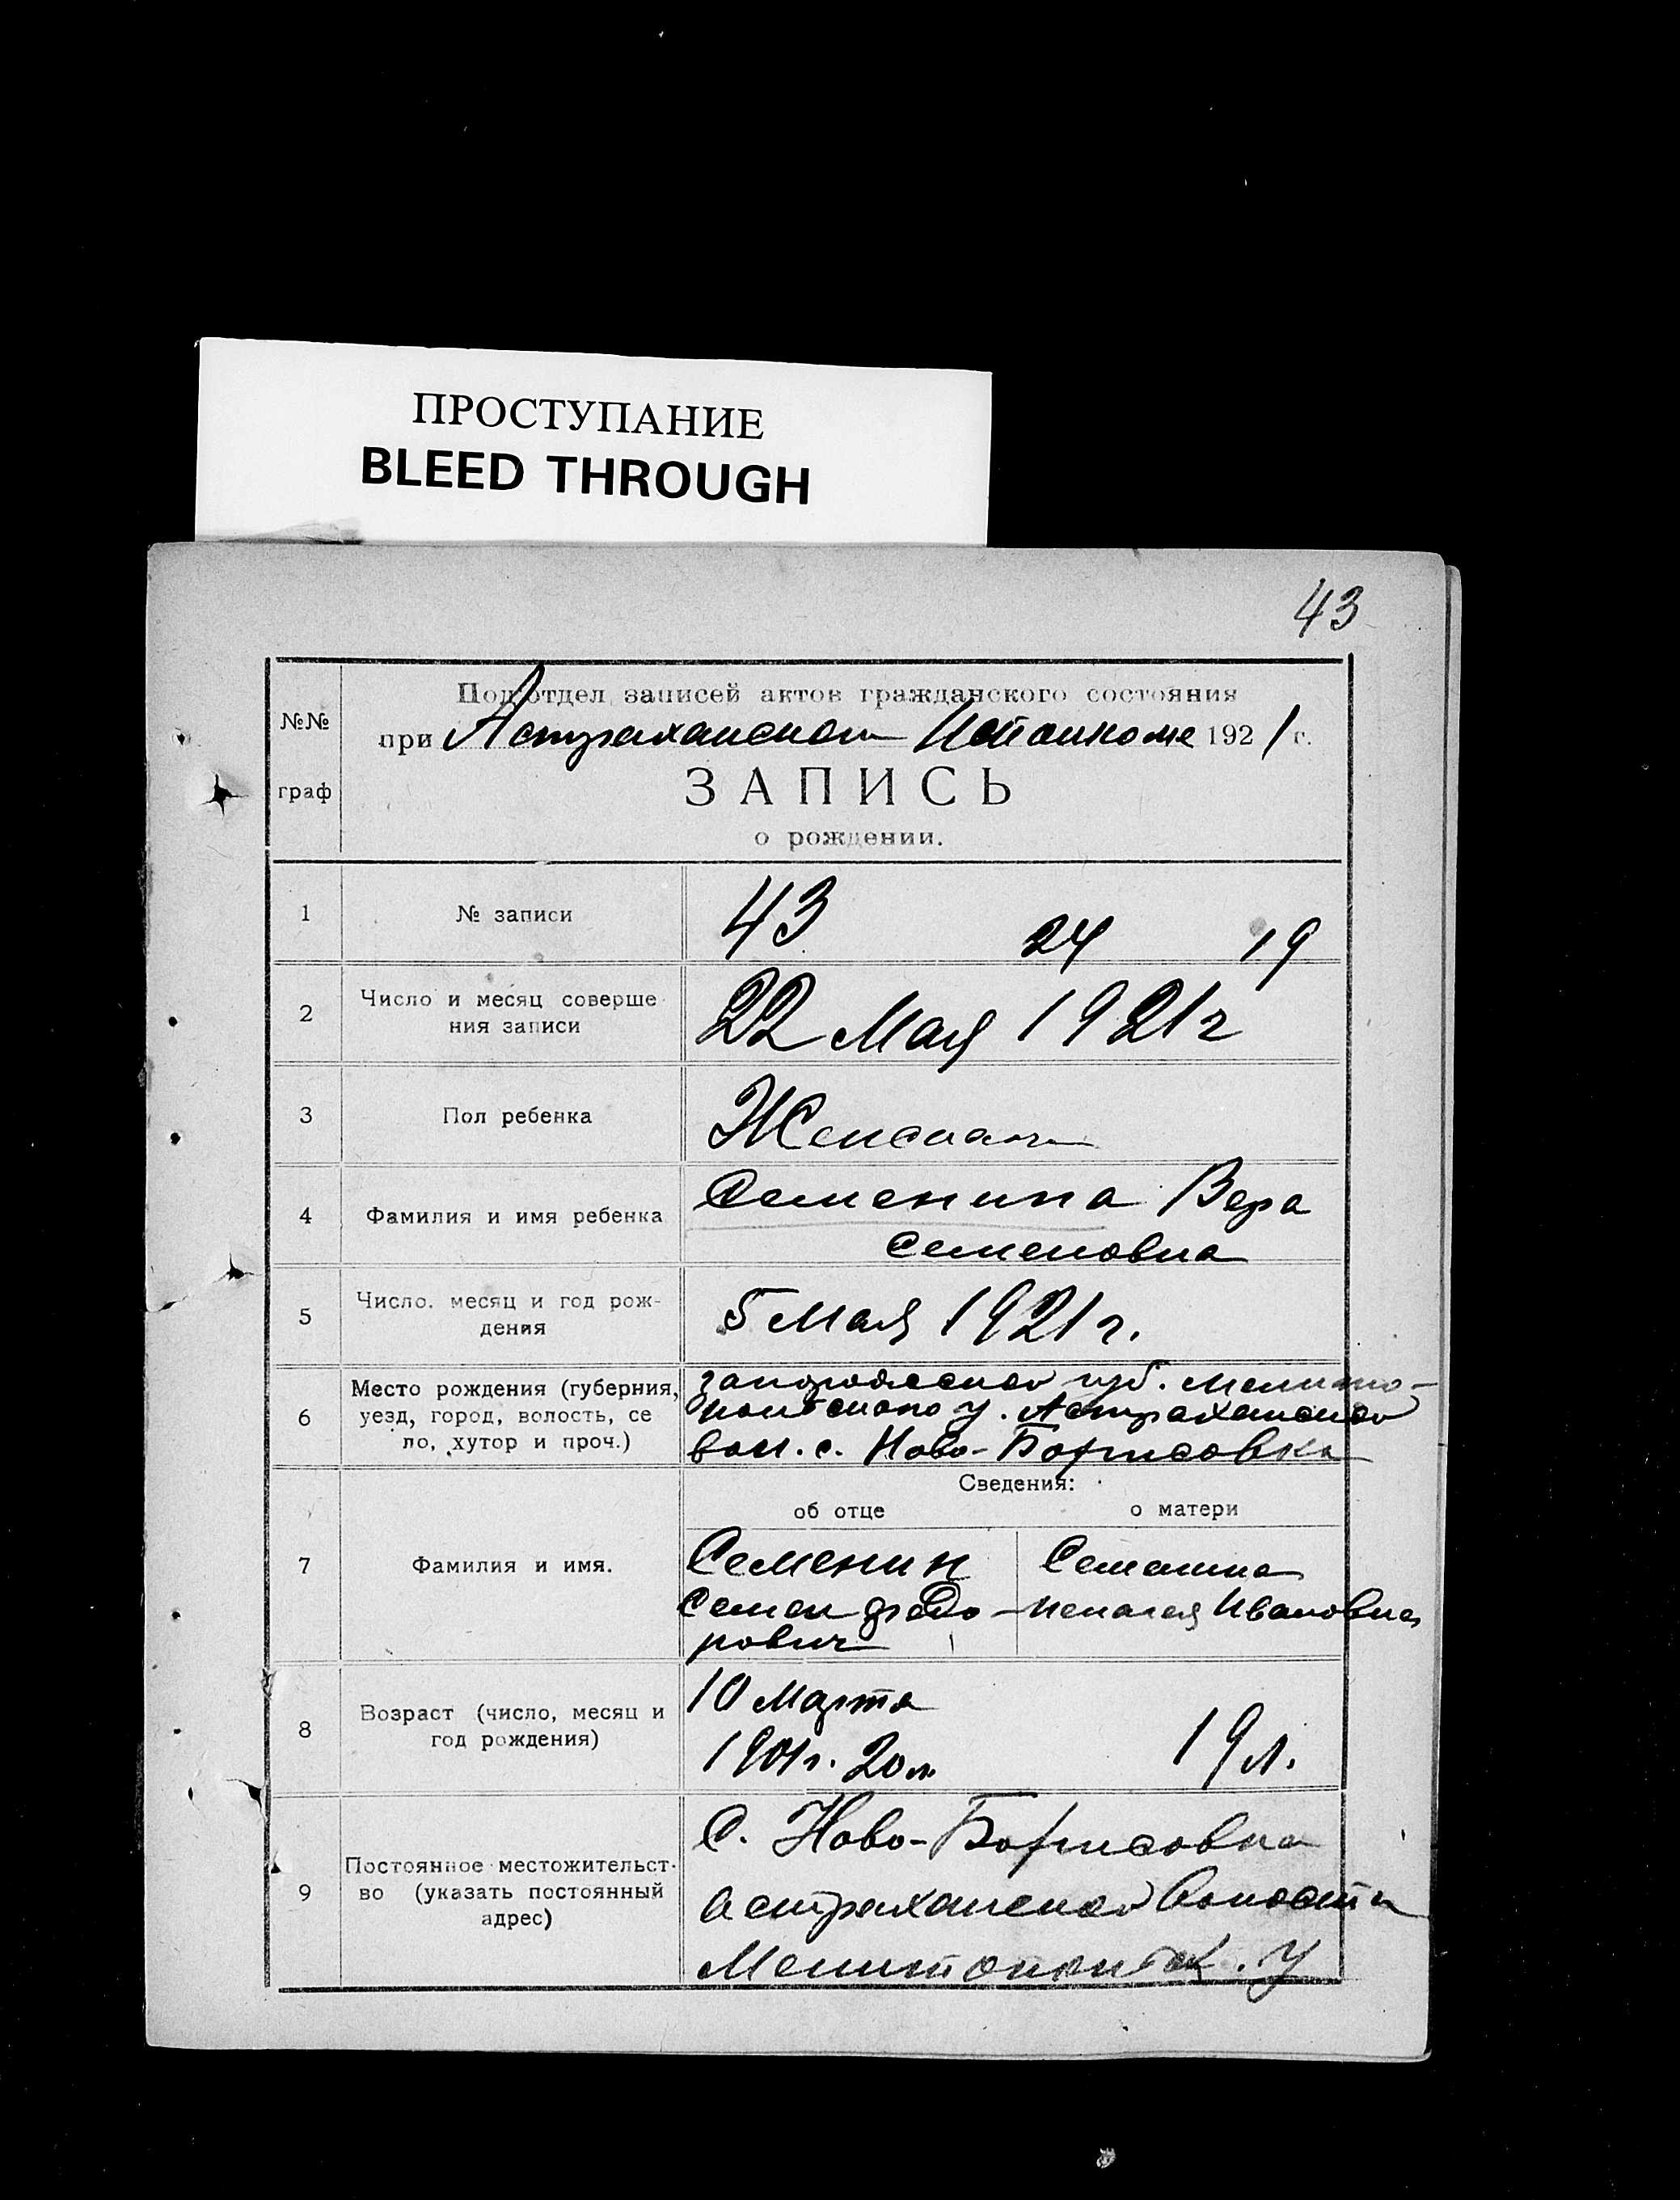 ПРОСТУПАНИЕ
BLEED THROUGH
43
№№
граф
Подотдел записей актов гражданского состояния
при Астраханском 1921 г.
ЗАПИСЬ
о рождении.
1 № записи 43 24 19
2 Число и месяц соверше
ния записи 22 Мая 1921 г
3 Пол ребенка Женский
4 Фамилия и имя ребенка Семенина Вера
Семеновна
5 Число. месяц и год рож-
дения 5 Мая 1921 г.
6 Место рождения (губерния,
уезд, город, волость, се
ло, хутор и проч.)
Запорожской губ. Мелито-
польского у. Астраханской
вол. с. Ново-Борисовка
Сведения:
об отце о матери
7 Фамилия и имя.
Семенин
Семен Федо-
рович
Семенина
Пелагея Ивановна
8 Возраст (число, месяц и
год рождения)
10 Марта
1901 г. 20 л
19 л.
9 Постоянное местожительст-
во (указать постоянный
адрес)
С. Ново-Борисовка
Астраханской волости
Мелитопольск. У